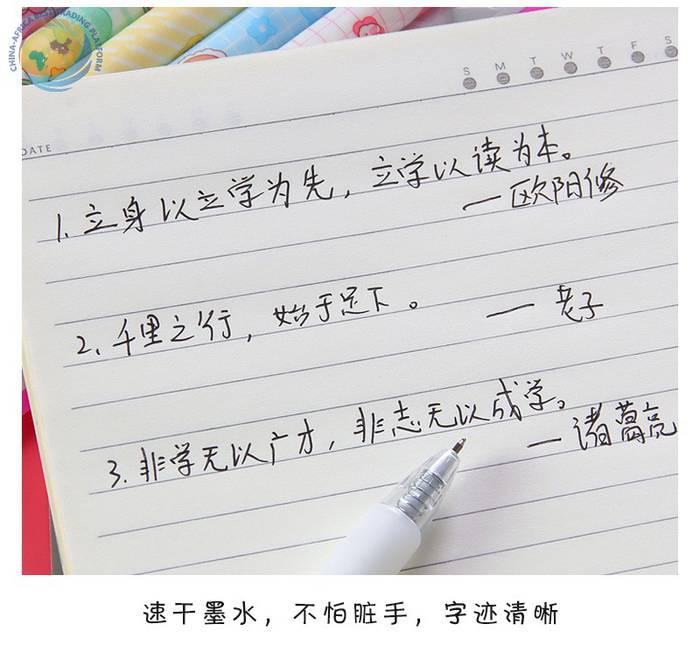 CHINA-AFRICA
TRADING PLATFORM
S M T W T F S
DATE
1. 立身以立学为先，立学以读为本。
—欧阳修
2. 千里之行，始于足下。
—老子
3. 非学无以广才，非志无以成学。
—诸葛亮
速干墨水，不怕脏手，字迹清晰